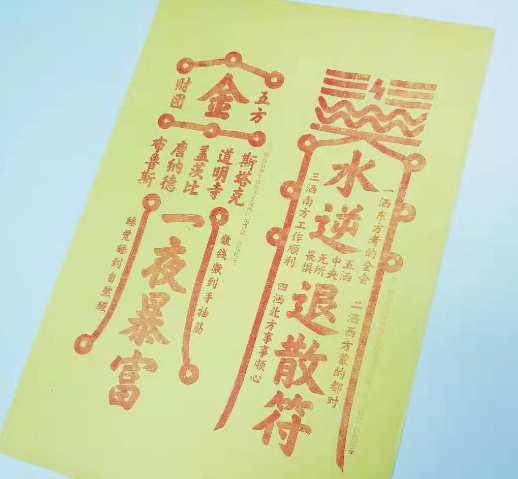 水逆退散符
一洒东方考的全会
二洒西方蒙的都对
三洒南方工作顺利
四洒北方事事顺心
五洒
中央
无所
畏惧
五方
金
财团
斯塔克
道明寺
盖茨比
唐纳德
布鲁斯
一夜暴富
数钱数到手抽筋
睡觉睡到自然醒